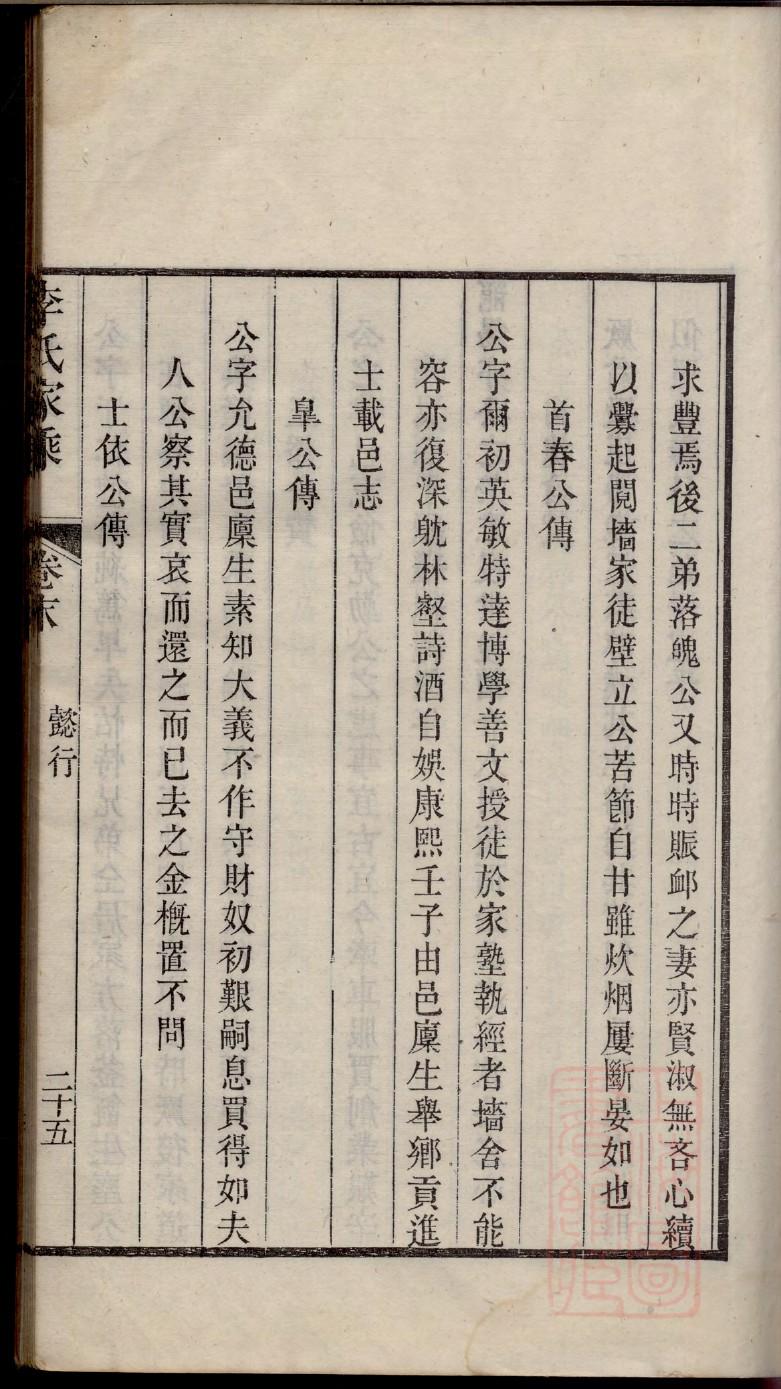 求豐焉後二弟落魄公又時時賑卹之妻亦賢淑無吝心續
以釁起鬩墻家徒壁立公苦節自甘雖炊烟屢斷晏如也
首春公傳
公字爾初英敏特達博學善文授徒於家塾執經者墻舍不能
容亦復深躭林壑詩酒自娛康熙壬子由邑廩生舉鄉貢進
士載邑志
皐公傳
公字允德邑廩生素知大義不作守財奴初艱嗣息買得如夫
人公察其實哀而還之而已去之金概置不問
士依公傳
李氏家乘 卷末 懿行 二十五